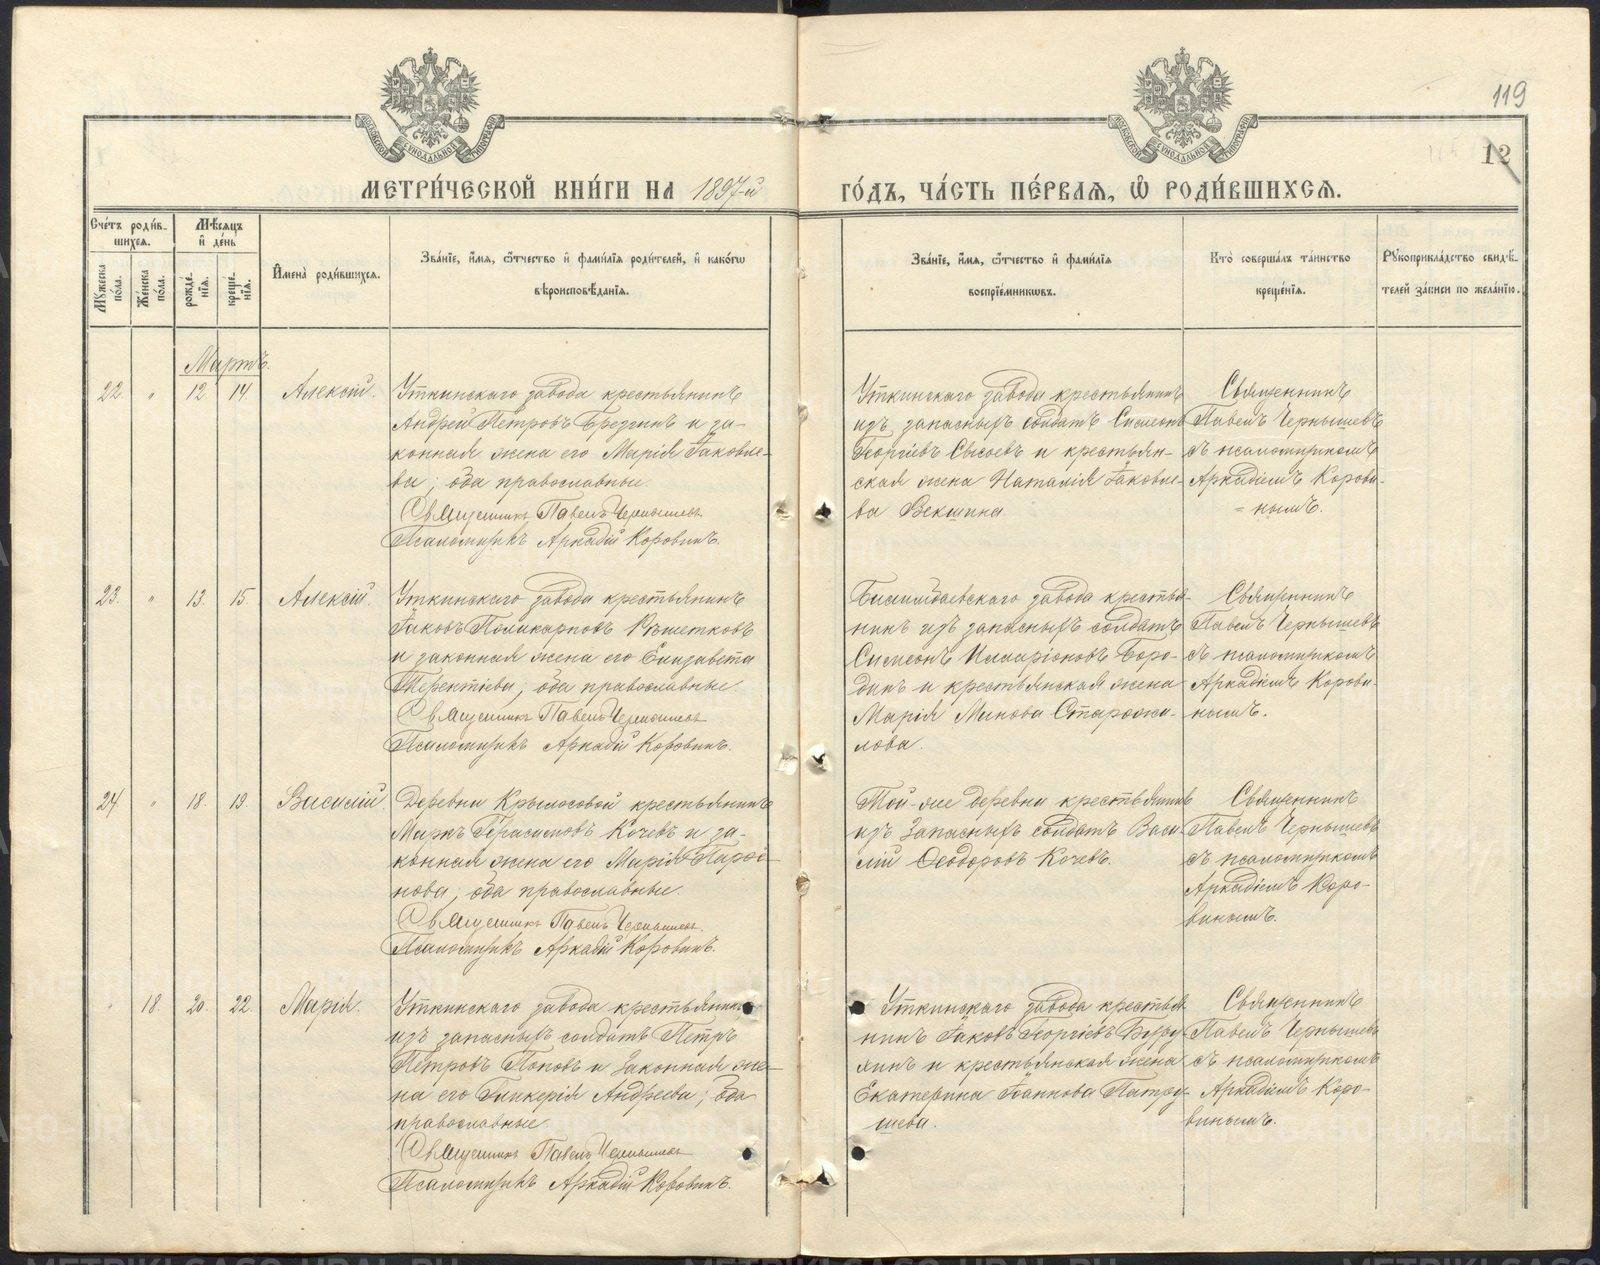 119
12
МОСКОВСКОЙ СѴНОДАЛЬНОЙ ТИПОГРАФІИ
МОСКОВСКОЙ СѴНОДАЛЬНОЙ ТИПОГРАФІИ
МЕТРИ́ЧЕСКОЙ КНИ́ГИ НА 1897-й
ГО́ДЪ, ЧА́СТЬ ПЕ́РВАѦ, Ѡ҆ РОДИ́ВШИХСѦ.
Сче́тъ роди́в-
шихсѧ.
Мѣ́сѧцъ
и҆ де́нь
Мꙋ́жеска
по́ла.
Же́нска
по́ла.
рожде́-
нїѧ.
креще́-
нїѧ.
И҆мена̀ роди́вшихсѧ.
Зва́нїе, и҆́мѧ, ѻ҆́тчество и҆ фами́лїѧ роди́телей, и҆ како́гѡ
вѣроисповѣ́данїѧ.
Зва́нїе, и҆́мѧ, ѻ҆́тчество и҆ фами́лїѧ
воспрїе́мникѡвъ.
Кто̀ соверша́лъ та́инство
креще́нїѧ.
Рꙋкоприкла́дство свидѣ́-
телей за́писи по жела́нїю.
Мартъ.
22. " 12 14 Алексій.
Уткинскаго завода крестьянинъ
Андрей Петровъ Брезгинъ и за-
конная жена его Марія Іаковле-
ва; оба православные.
Священникъ Павелъ Чернышевъ
Псаломщикъ Аркадій Коровинъ.
Уткинскаго завода крестьянинъ
изъ запасныхъ солдатъ Симеонъ
Георгіевъ Сысоевъ и крестьян-
ская жена Наталія Іаковле-
ва Векшина
Священникъ
Павелъ Чернышевъ
съ псаломщикомъ
Аркадіемъ Корови-
нымъ.
23. " 13. 15 Алексій.
Уткинскаго завода крестьянинъ
Іаковъ Поликарповъ Рѣшетковъ
и законная жена его Елизавета
Терентіева; оба православные.
Священникъ Павелъ Чернышевъ
Псаломщикъ Аркадій Коровинъ.
Билимбаевскаго завода крестья-
нинъ изъ запасныхъ солдатъ
Симеонъ Илларіоновъ Боро-
динъ и крестьянская жена
Марія Минова Старожи-
лова.
Священникъ
Павелъ Чернышевъ
съ псаломщикомъ
Аркадіемъ Корови-
нымъ.
24 " 18. 19. Василій
Деревни Крылосовой крестьянинъ
Маркъ Герасимовъ Кочевъ и за-
конная жена его Марія Парѳе-
нова; оба православные.
Священникъ Павелъ Чернышевъ.
Псаломщикъ Аркадій Коровинъ.
Той-же деревни крестьянинъ
изъ запасныхъ солдатъ Васи-
лій Ѳеодоровъ Кочевъ.
Священникъ
Павелъ Чернышевъ
съ псаломщикомъ
Аркадіемъ Коро-
винымъ.
" 18. 20. 22. Марія.
Уткинскаго завода крестьянинъ
изъ запасныхъ солдатъ Петръ
Петровъ Поповъ и законная же-
на его Гликерія Андреева; оба
православные.
Священникъ Павелъ Чернышевъ
Псаломщикъ Аркадій Коровинъ.
Уткинскаго завода крестья-
нинъ Іаковъ Георгіевъ
и крестьянская жена
Екатерина Іоаннова Патру-
шева.
Священникъ
Павелъ Чернышевъ
съ псаломщикомъ
Аркадіемъ Коро-
винымъ.